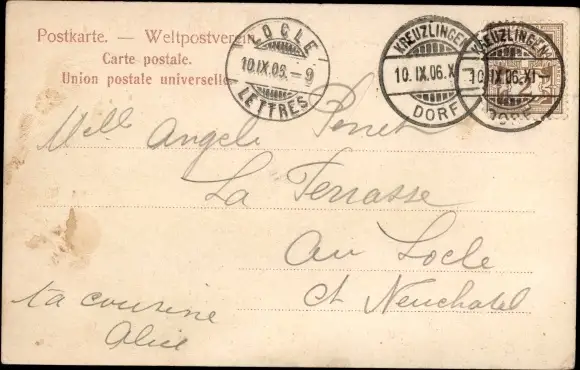 Postkarte. — Weltpostverein.
Carte postale.
Union postale universelle.
LOCLE
10.IX.06.–9
LETTRES
KREUZLINGEN
10.IX.06.X
DORF
KREUZLINGEN
10.IX.06.XI–
DORF
2
Melle Angele Perret
La Terrasse
au Locle
ct Neuchatel
ta cousine
Alice